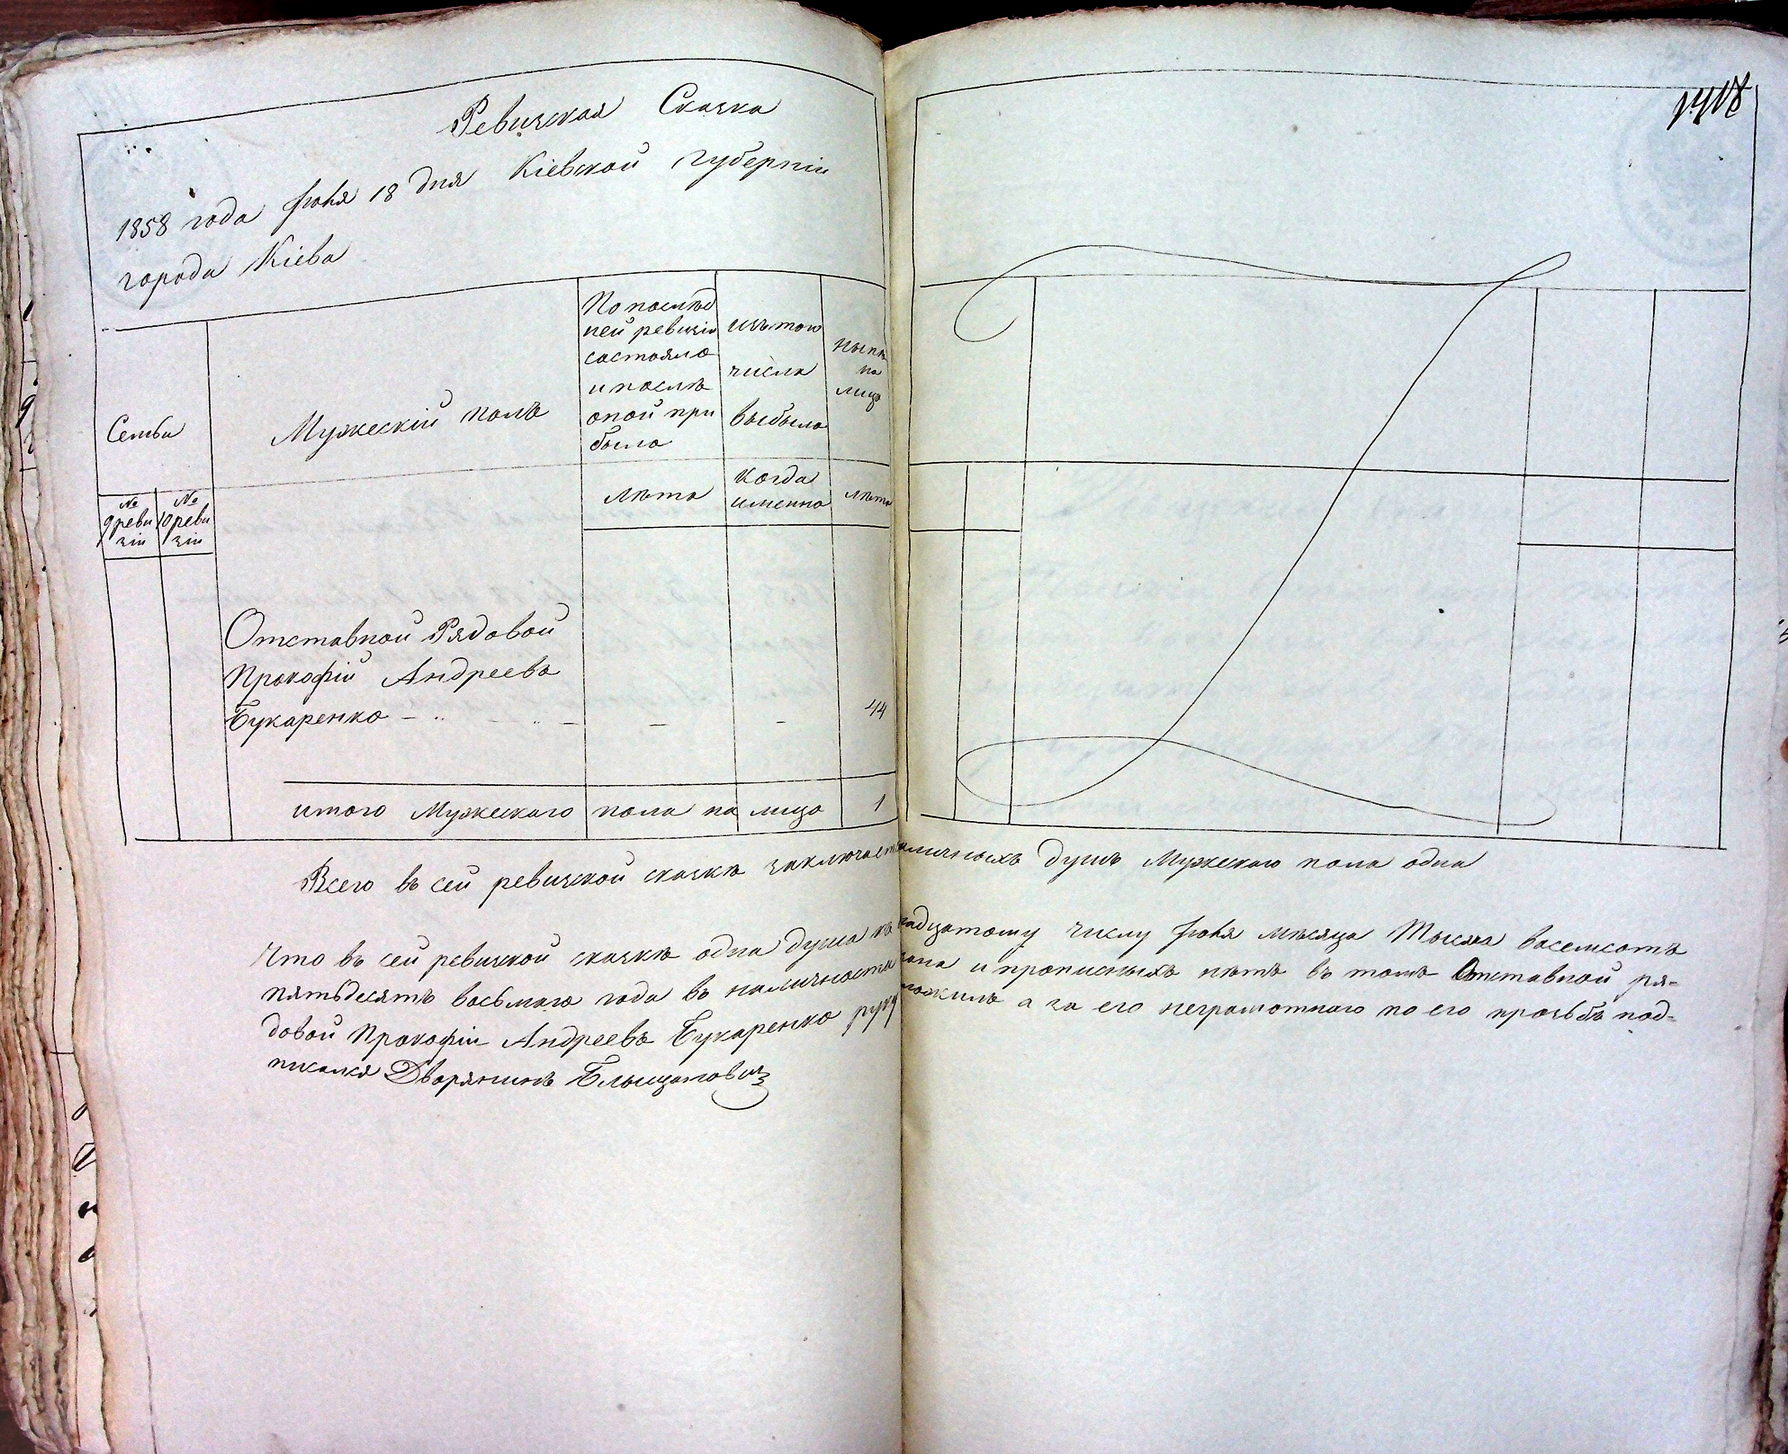 1418
Ревизская Сказка
1858 года Июня 18 дня Кіевской Губерніи
города Кіева
Семьи
Мужескій полъ
По послѣд
ней ревизіи
состояло
и послѣ
оной при
было
изъ того
числа
выбыло
Нынѣ
на
лицо
№
9 реви
зіи
№
10 реви
зіи
лѣта
Когда
именно
лѣта
Отставной Рядовой
Прокофій Андреевъ
Букаренко – – – – 44
итого Мужескаго пола на лицо 1
Всего въ сей ревизской сказкѣ заключает наличныхъ душъ Мужескаго пола одна
Что въ сей ревизской сказкѣ одна душа къ надцатому числу Июня мѣсяца Тысяча восемсотъ
пятьдесятъ восьмаго года въ наличности и прописныхъ нѣтъ въ томъ Отставной ря-
довой Прокофій Андреевъ Букаренко руку ложилъ а за его неграмотнаго по его прозьбѣ под-
писался Дворянинъ